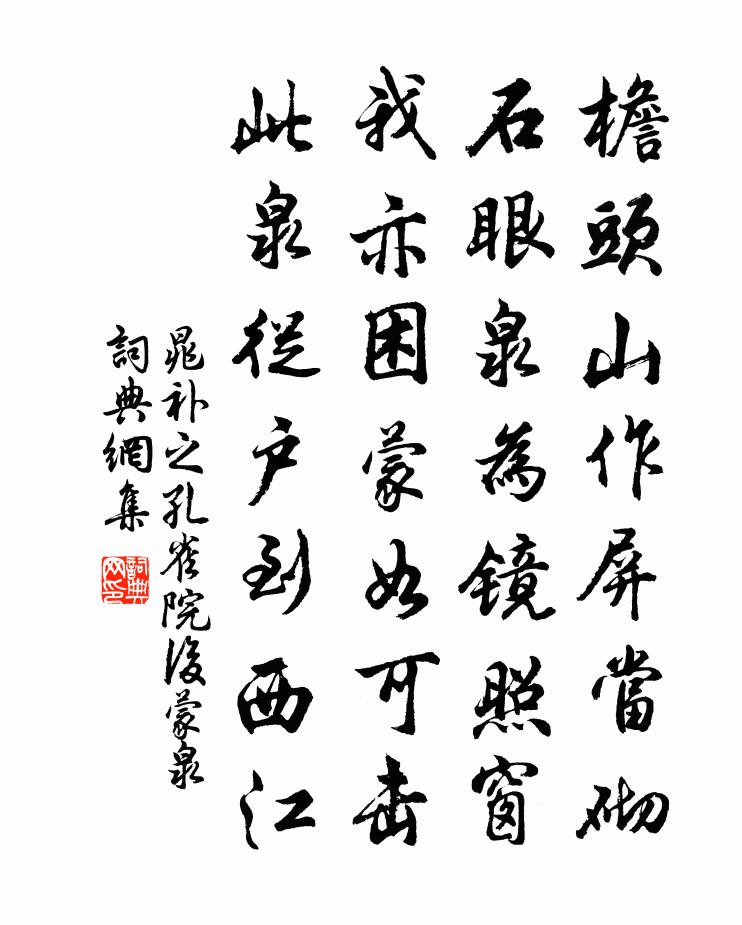 檐頭山作屏當砌
石眼泉為鏡照窗
我亦困蒙如可击
此泉從户到西江
晁补之孔雀院後蒙泉
詞典網集
詞典网印